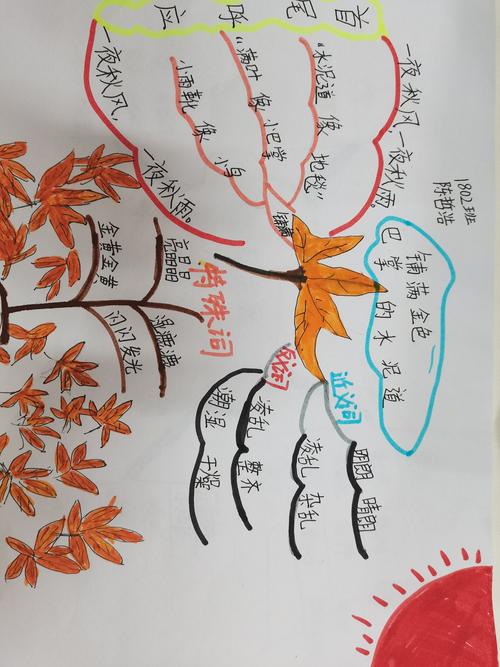 1802班
陈哲浩
铺满金色
巴掌的水泥道
首尾
呼应
一夜秋风,一夜秋雨。
“水泥道 像 地毯”
“落叶 像 小巴掌
小雨靴 像 小鸟
一夜秋风,
一夜秋雨。
近义词
明朗 晴朗
凌乱 杂乱
反义词
凌乱 整齐
潮湿 干燥
特殊词
亮晶晶 湿漉漉
金黄金黄 闪闪发光